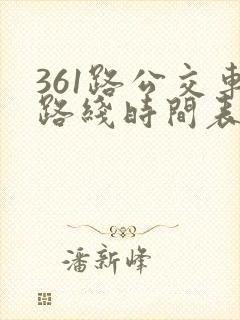 361路公交車
路綫時間表
潘新峰